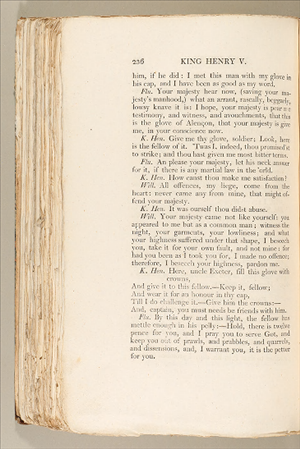 236 KING HENRY V.
him, if he did: I met this man with my glove in
his cap, and I have been as good as my word.
Flu. Your majesty hear now, (saving your ma-
jesty's manhood,) what an arrant, rascally, beggarly,
lowsy knave it is: I hope, your majesty is pear me
testimony, and witness, and avouchments, that this
is the glove of Alençon, that your majesty is give
me, in your conscience now.
K. Hen. Give me thy glove, soldier; Look, here
is the fellow of it. 'Twas I, indeed, thou promised'st
to strike; and thou hast given me most bitter terms.
Flu. An please your majesty, let his neck answer
for it, if there is any martial law in the 'orld.
K. Hen. How canst thou make me satisfaction?
Will. All offences, my liege, come from the
heart: never came any from mine, that might of-
fend your majesty.
K. Hen. It was ourself thou didst abuse.
Will. Your majesty came not like yourself: you
appeared to me but as a common man; witness the
night, your garments, your lowliness; and what
your highness suffered under that shape, I beseech
you, take it for your own fault, and not mine: for
had you been as I took you for, I made no offence;
therefore, I beseech your highness, pardon me.
K. Hen. Here, uncle Exeter, fill this glove with
crowns,
And give it to this fellow.—Keep it, fellow;
And wear it for an honour in thy cap,
Till I do challenge it.—Give him the crowns:—
And, captain, you must needs be friends with him.
Flu. By this day and this light, the fellow has
mettle enough in his pelly:—Hold, there is twelve
pence for you, and I pray you to serve Got, and
keep you out of prawls, and prabbles, and quarrels,
and dissensions, and, I warrant you, it is the petter
for you.